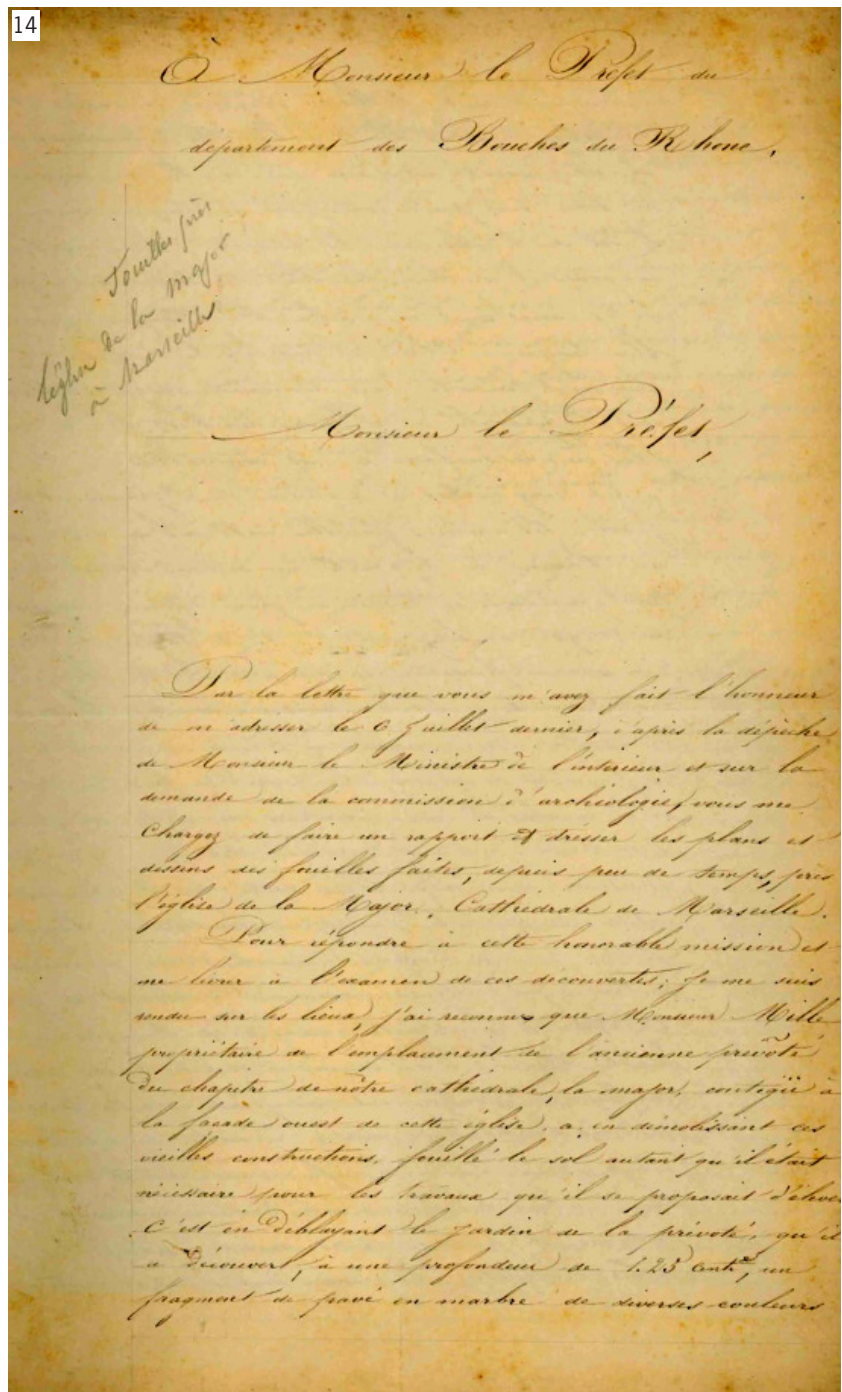 14
À Monsieur le Préfet du
département des Bouches du Rhone,
Fouilles près
l'église de la major
à Marseille
Monsieur le Préfet,
Par la lettre que vous m'avez fait l'honneur
de m'adresser le 6 Juillet dernier, d'après la dépêche
de Monsieur le Ministre de l'intérieur et sur la
demande de la commission d'archéologie, vous me
Chargez de faire un rapport et dresser les plans et
dessins des fouilles faites, depuis peu de temps, près
l'église de la Major, Cathédrale de Marseille.
Pour répondre à cette honorable mission et
me livrer à l'examen de ces découvertes; Je me suis
rendu sur les lieux, j'ai reconnu que Monsieur Mille
propriétaire de l'emplacement de l'ancienne prévôté
du chapitre de nôtre cathédrale, la major, contigüe à
la façade ouest de cette église, a, en démolissant ces
vieilles constructions, fouillé le sol autant qu'il était
nécessaire pour les travaux qu'il se proposait d'élever
C'est en déblayant le Jardin de la prévoté, qu'il
a découvert, à une profondeur de 1.25 cent.es, un
fragment de pavé en marbre de diverses couleurs